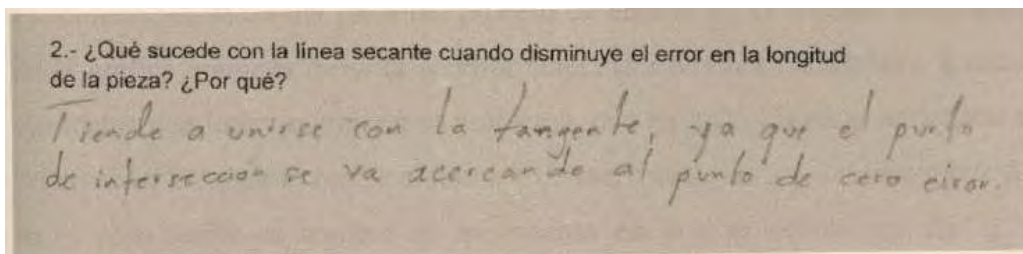 2.- ¿Qué sucede con la línea secante cuando disminuye el error en la longitud
de la pieza? ¿Por qué?
Tiende a unirse con la tangente, ya que el punto
de interseccion se va acercando al punto de cero error.